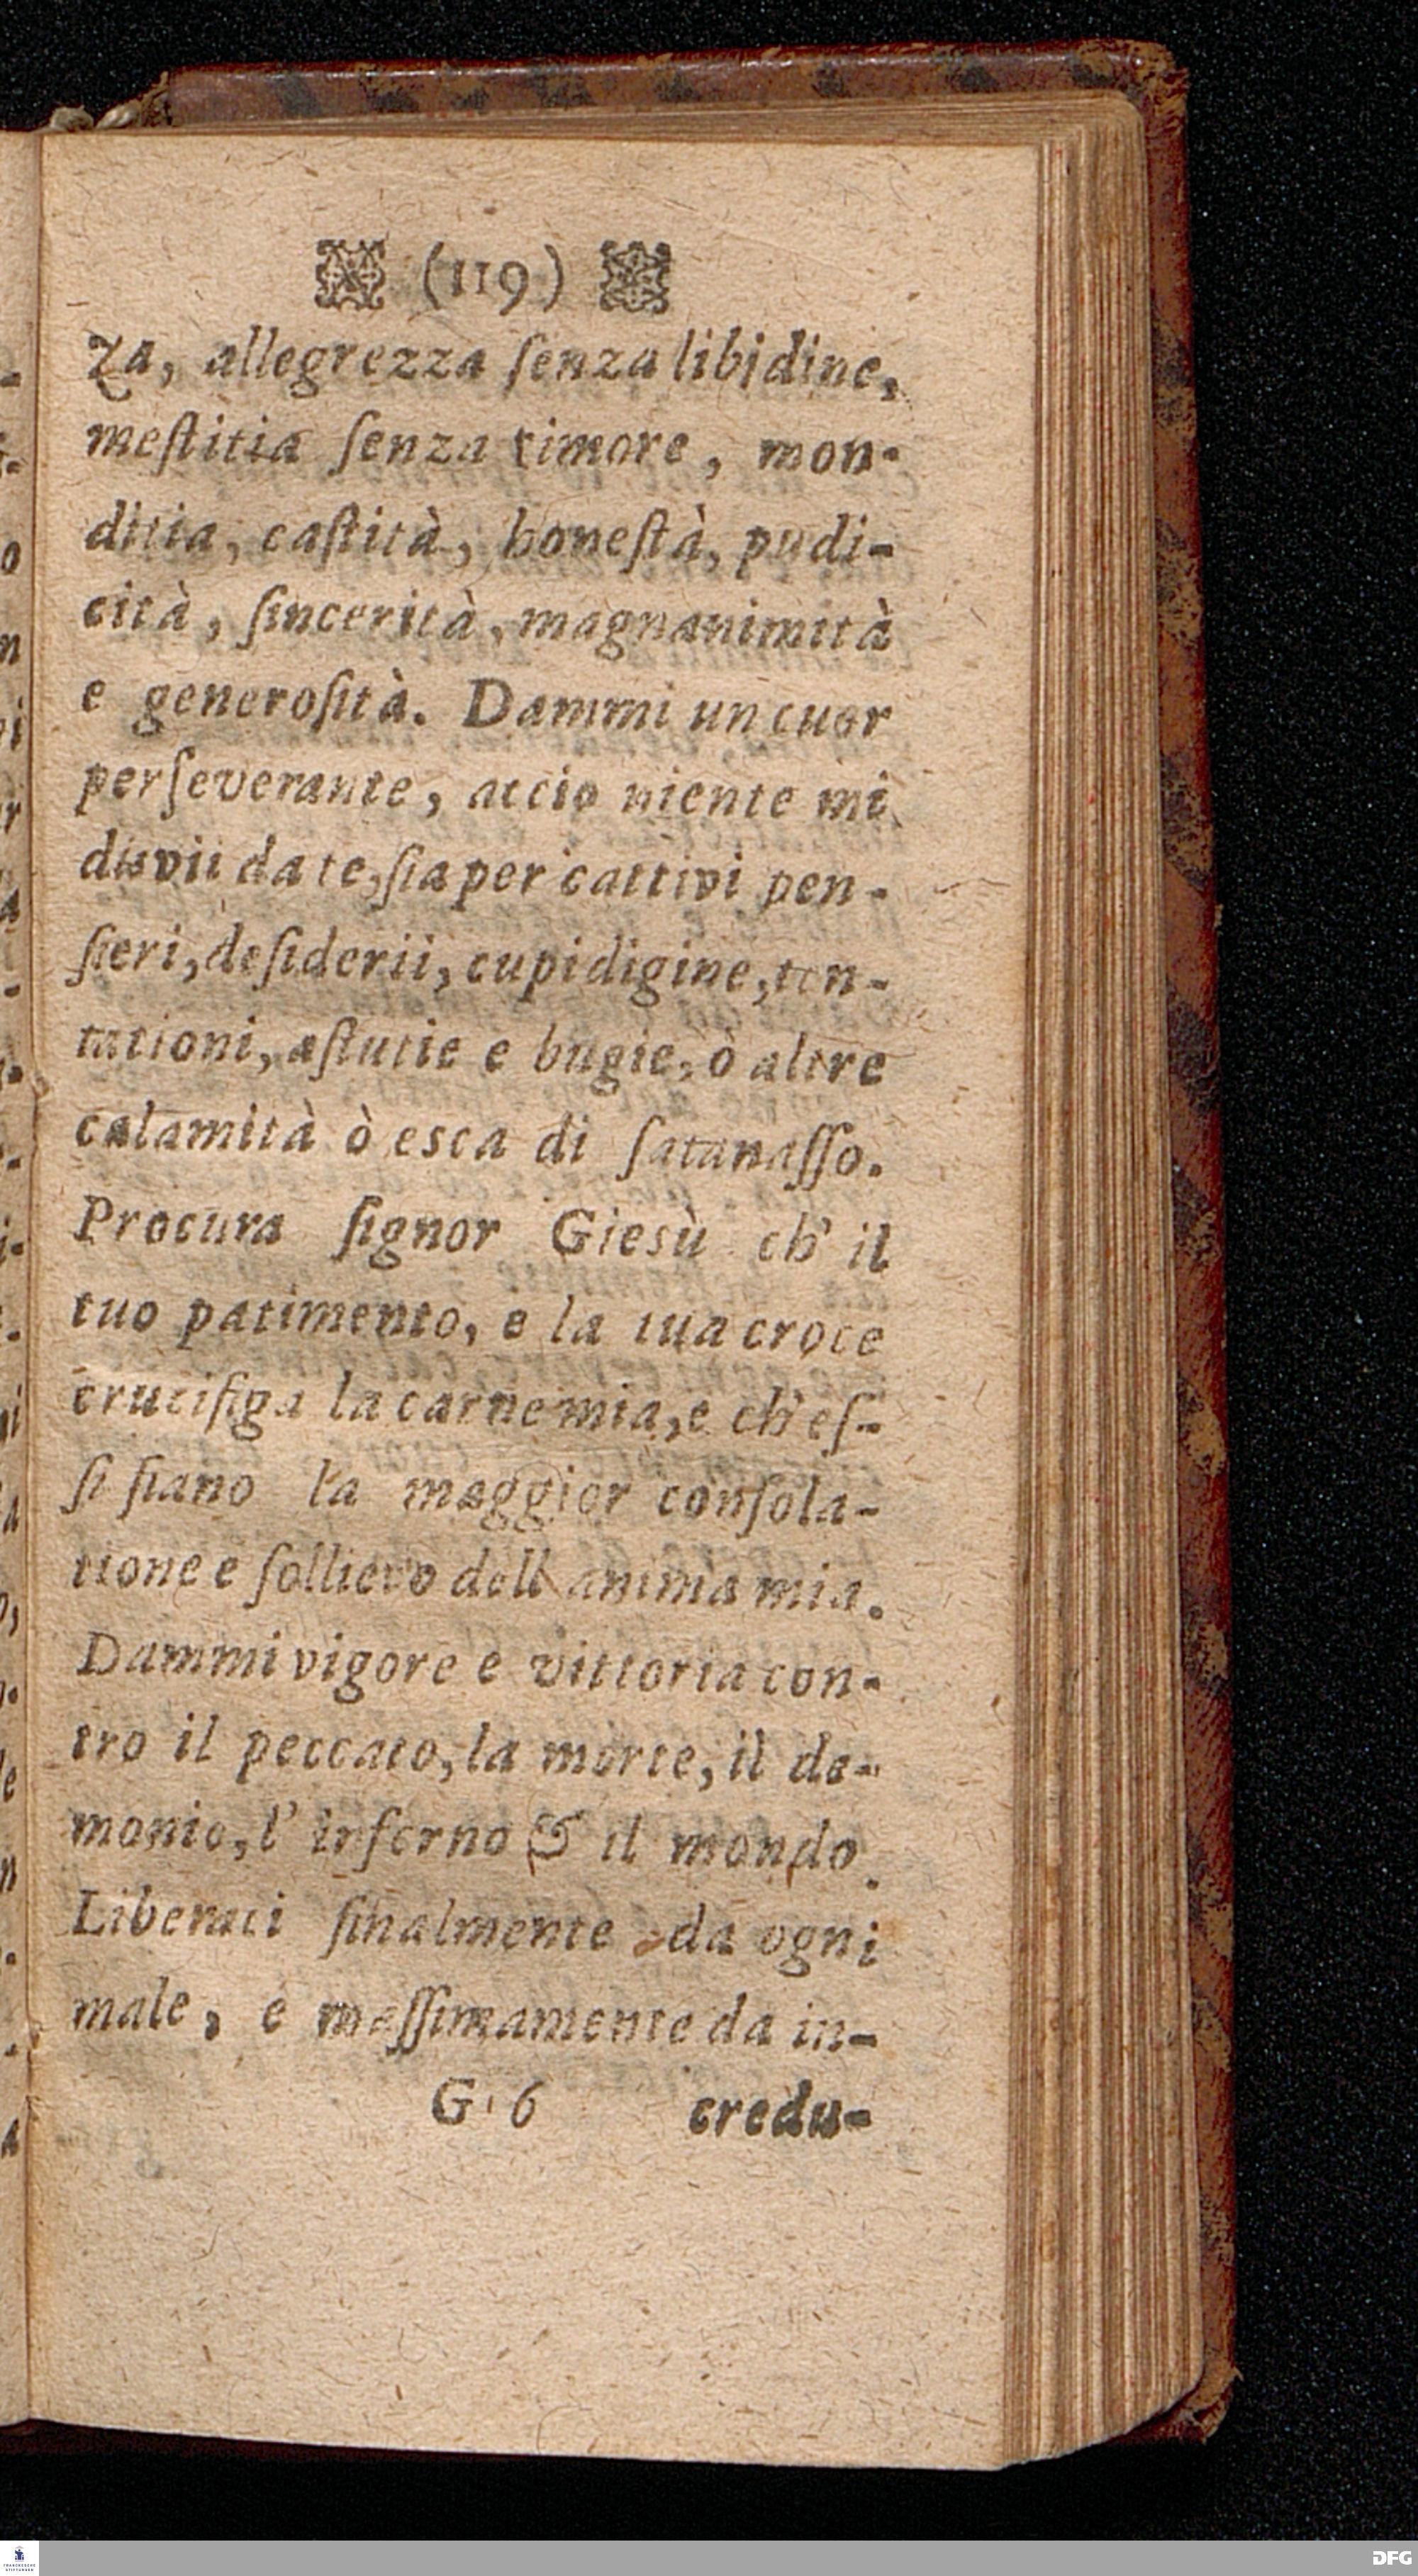 (119)
za, allegrezza ſenza libidine,
meſtitia ſenza timore, mon-
ditia, caſtità, honeſtà, pudi-
cità, ſincerità, magnanimità
e generoſità. Dammi un cuor
perſeverante, accio niente mi
disvii da te, ſia per cattivi pen-
ſieri, deſiderii, cupidigine, ten-
tationi, aſtutie e bugie, ò altre
calamità ò esca di ſatanaſſo.
Procura ſignor Giesù ch' il
tuo patimento, e la tua croce
crucifiga la carne mia, e ch' eſ-
ſi ſiano la maggior conſola-
tione e ſollievo dell anima mia.
Dammi vigore e vittoria con-
tro il peccato, la morte, il de-
monio, l' inferno & il mondo.
Liberaci finalmente da ogni
male, e maſſimamente da in-
G 6 credu-
FRANCKESCHE
STIFTUNGEN
DFG